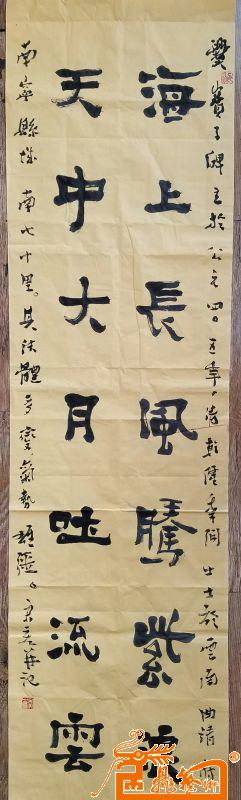 爨寶子碑立於公元四〇五年。清乾隆年間出土於雲南曲靖
海上長風騰紫浪
天中大月吐流雲
南寧縣城南七十里。其體多變氣勢雄強。華記